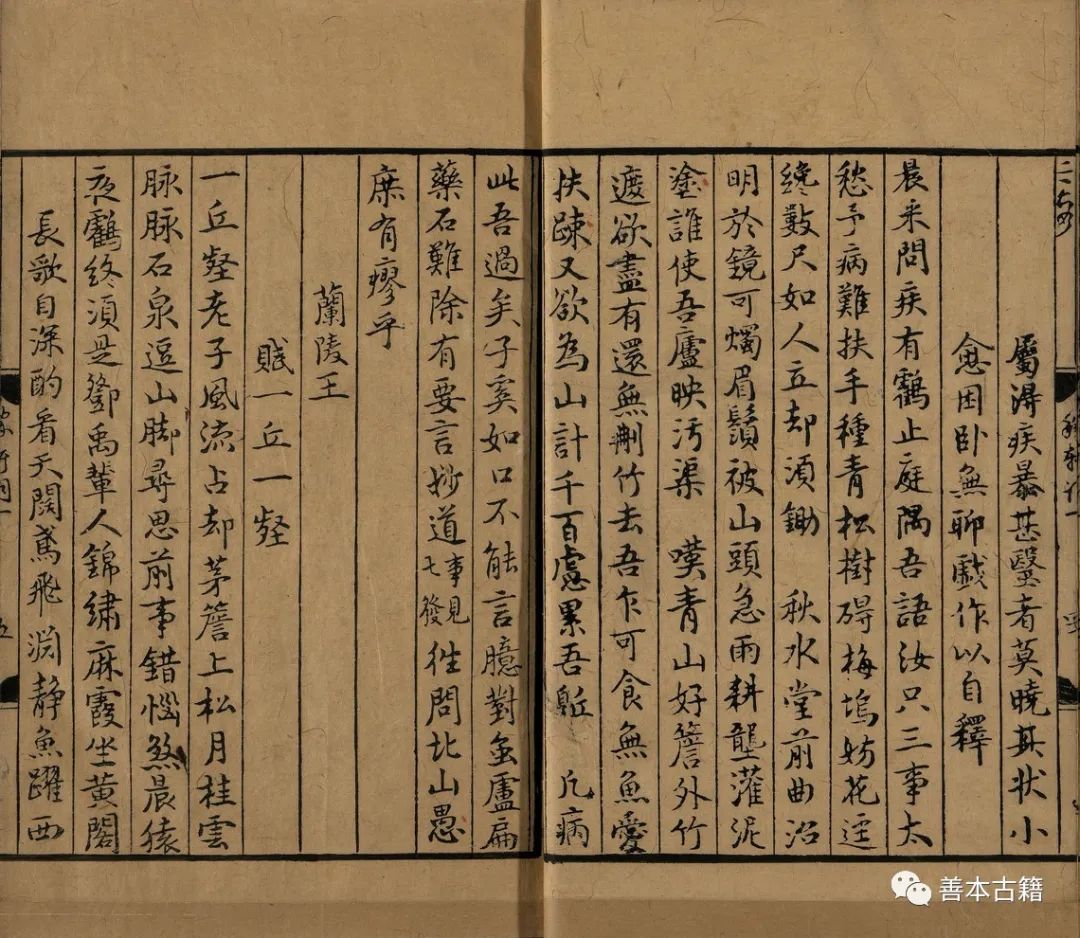 屬得疾暴甚毉者莫曉其狀小
愈困卧無聊戲作以自釋
晨来問疾有鶴止庭隅吾語汝只三事太
愁予病難扶手種青松樹碍梅塢妨花逕
纔數尺如人立却湏鋤 秋水堂前曲沼
明於鏡可燭眉鬚被山頭急雨耕壟灌泥
塗誰使吾廬映污渠 嘆青山好簷外竹
遮欲盡有還無刪竹去吾乍可食無魚愛
扶踈又欲為山計千百慮累吾軀 凡病
此吾過矣子奚如口不能言臆對𨿽盧扁
藥石難除有要言妙道事見七發徃問北山愚
庶有瘳乎
蘭陵王
賦一丘一壑
一丘壑老子風流占却茅簷上松月桂雲
脉脉石泉逗山脚尋思前事錯惱煞晨猿
夜鶴終湏是鄧禹輩人錦繡麻霞坐黄閣
長歌自深酌看天闊鳶飛淵静魚躍西
善本古籍